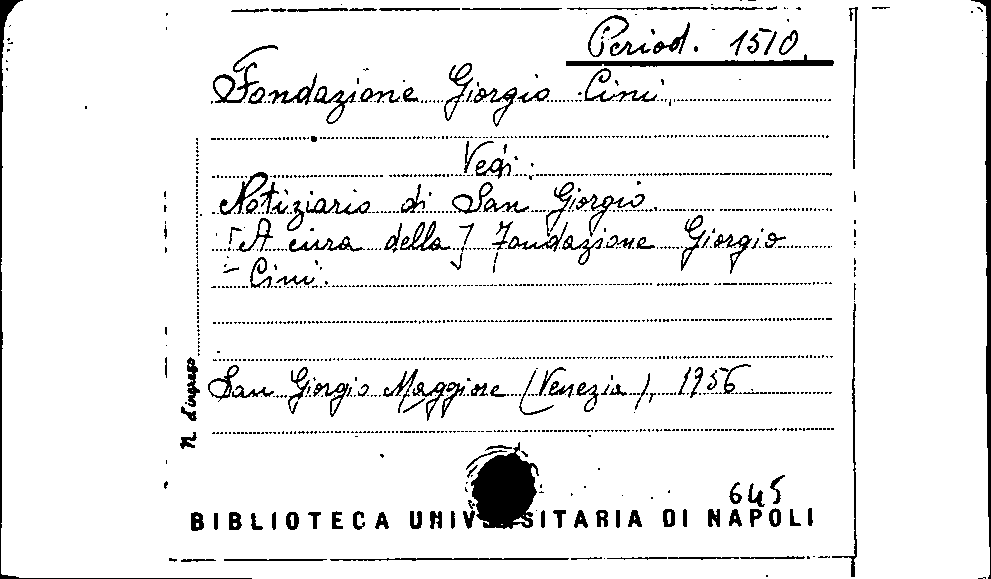 Period. 1510.
Fondazione Giorgio Cini.
Vedi:
Notiziario di San Giorgio.
[A cura della] Fondazione Giorgio
Cini.
San Giorgio Maggiore (Venezia), 1956.
N. d'ingresso
645
BIBLIOTECA UNIVERSITARIA DI NAPOLI